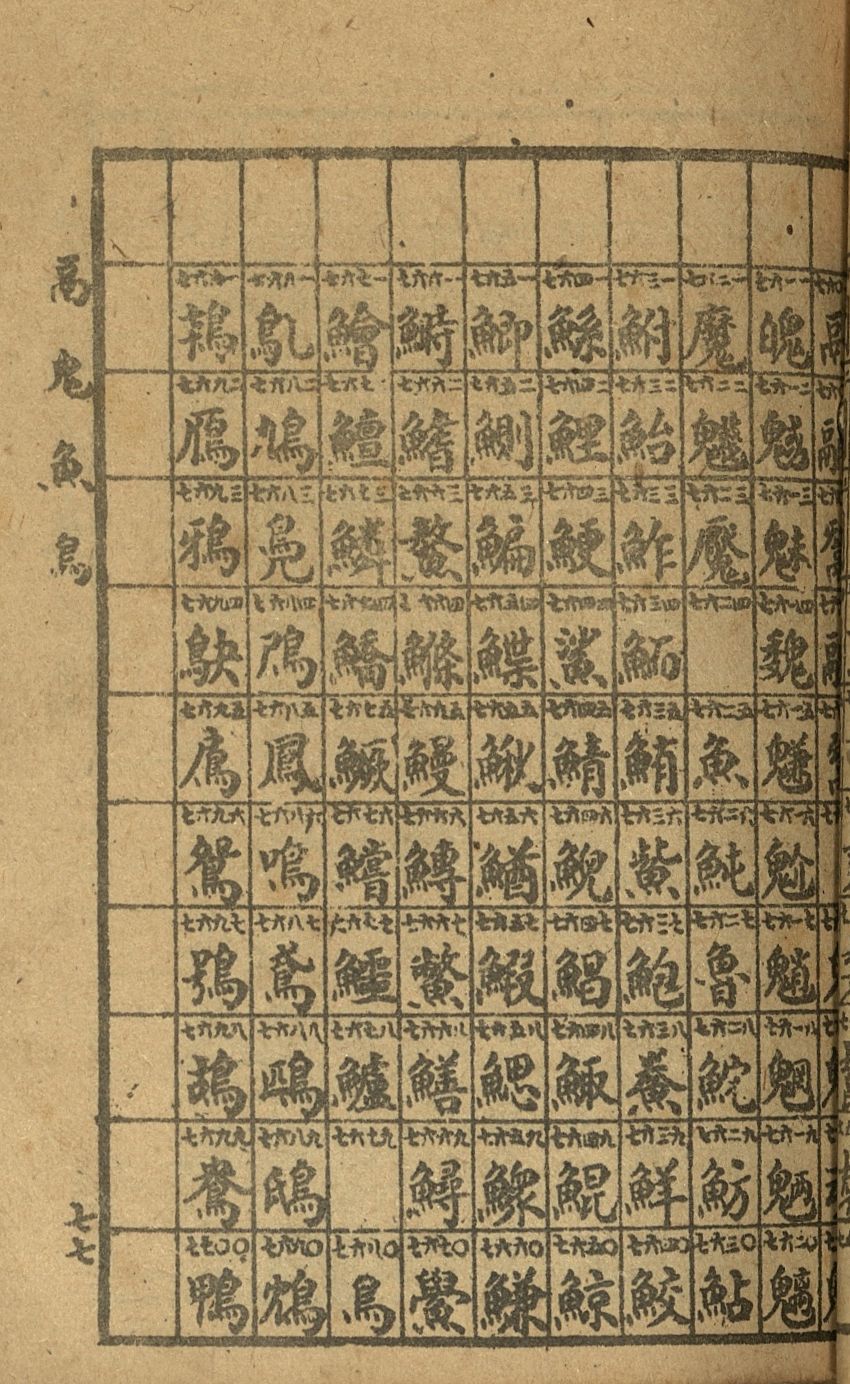 七六一一 魄 七六一二 七六一三 魅 七六一四 魏 七六一五 七六一六 魀 七六一七 魈 七六一八 魍 七六一九 魎 七六二〇 魑
七六二一 魔 七六二二 七六二三 魘 七六二四 七六二五 魚 七六二六 魨 七六二七 魯 七六二八 魭 七六二九 魴 七六三〇 鮎
七六三一 鮒 七六三二 鮐 七六三三 鮓 七六三四 七六三五 鮹 七六三六 鮆 七六三七 鮑 七六三八 鮝 七六三九 鮮 七六四〇 鮫
七六四一 鯀 七六四二 鯉 七六四三 鯁 七六四四 鯊 七六四五 鯖 七六四六 鯢 七六四七 鯧 七六四八 鯫 七六四九 鯤 七六五〇 鯨
七六五一 鯽 七六五二 鰂 七六五三 鯿 七六五四 鰈 七六五五 鰍 七六五六 鰌 七六五七 鰕 七六五八 鰓 七六五九 鰥 七六六〇 鰜
七六六一 鰣 七六六二 鰭 七六六三 鰲 七六六四 鰷 七六六五 鰻 七六六六 鱄 七六六七 鱉 七六六八 鱔 七六六九 鱘 七六七〇 鱟
七六七一 鱠 七六七二 鱣 七六七三 鱗 七六七四 鱎 七六七五 鱖 七六七六 鱨 七六七七 鱷 七六七八 鱸 七六七九 七六八〇 鳥
七六八一 鳦 七六八二 鳩 七六八三 鳧 七六八四 七六八五 鳳 七六八六 鳴 七六八七 鳶 七六八八 七六八九 鴟 七六九〇 鴆
七六九一 鴇 七六九二 鴈 七六九三 鴉 七六九四 鴃 七六九五 七六九六 鴛 七六九七 鴞 七六九八 鴣 七六九九 鴦 七七〇〇 鴨
鬲鬼魚鳥
七七